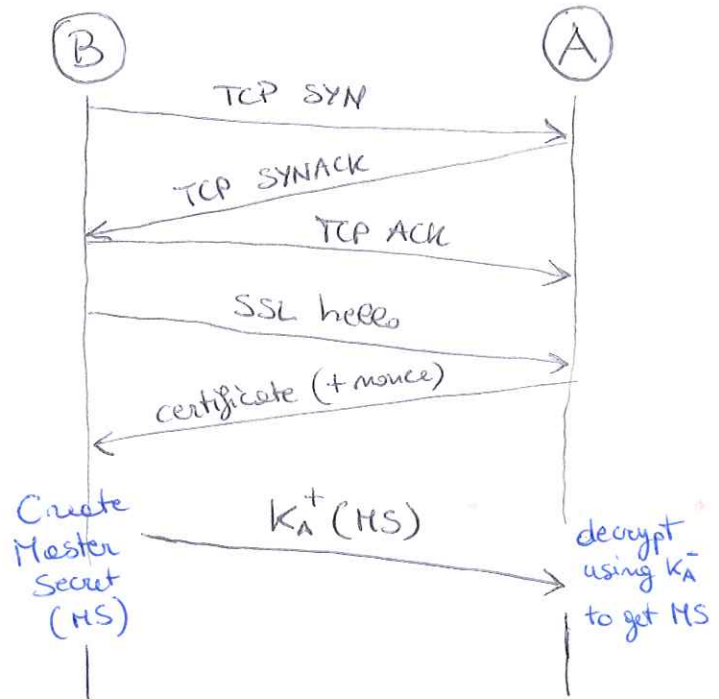 B
A
TCP SYN
TCP SYNACK
TCP ACK
SSL hello
certificate (+ nonce)
Create
Master
Secret
(MS)
K_A^+ (MS)
decrypt
using K_A^-
to get MS